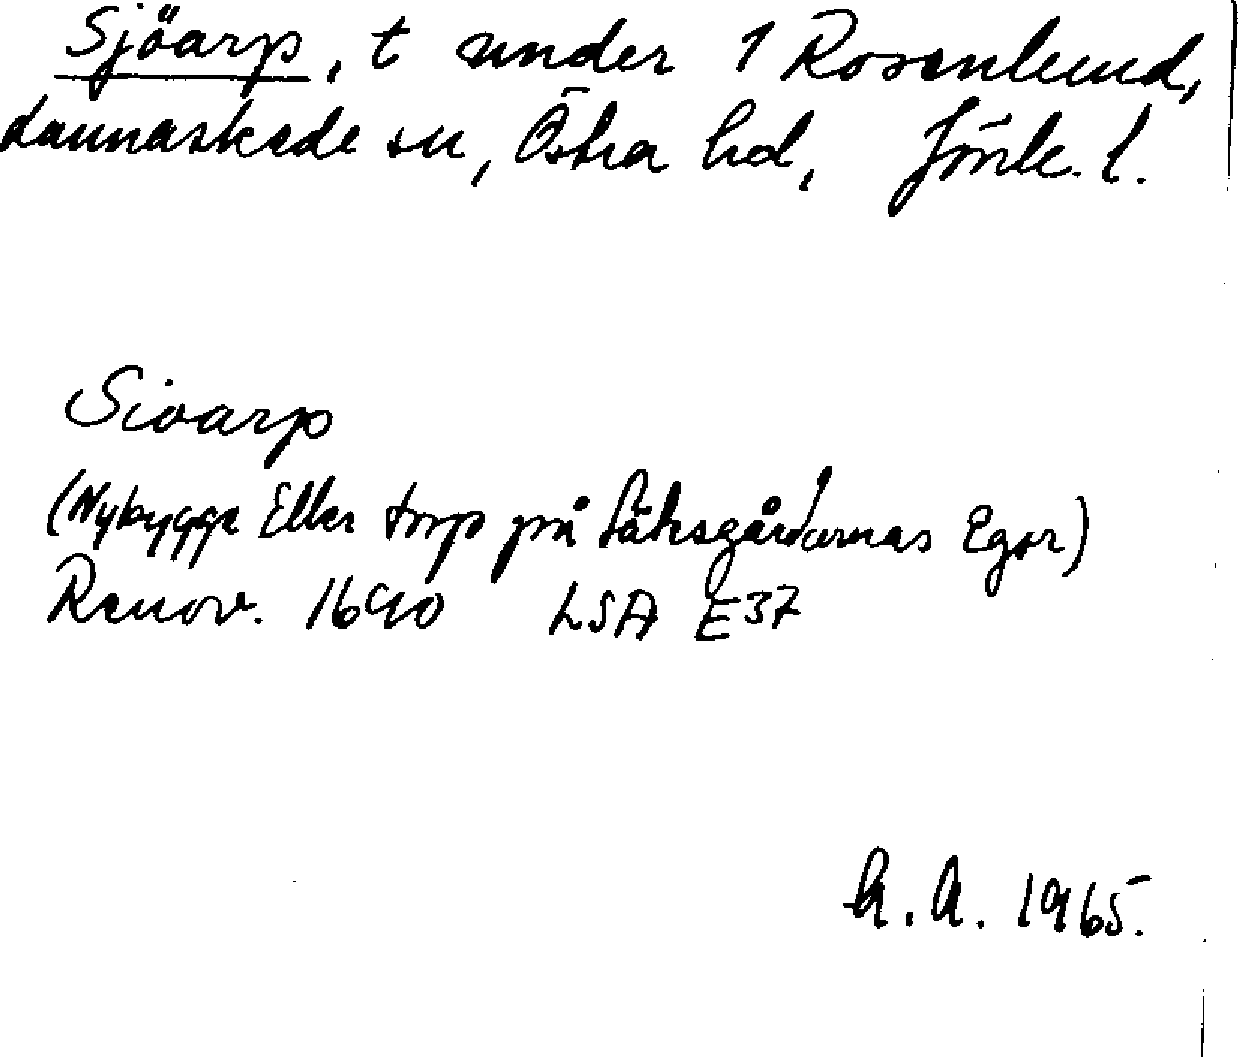 Sjöarp, t under 1 Rosenlund,
Lannaskede sn, Östra hd, Jönk. l.
Sioarp
(Nybygge Eller torp på Sätesgårdarnas Egor)
Renov. 1690 LSA E37
A. 1965.